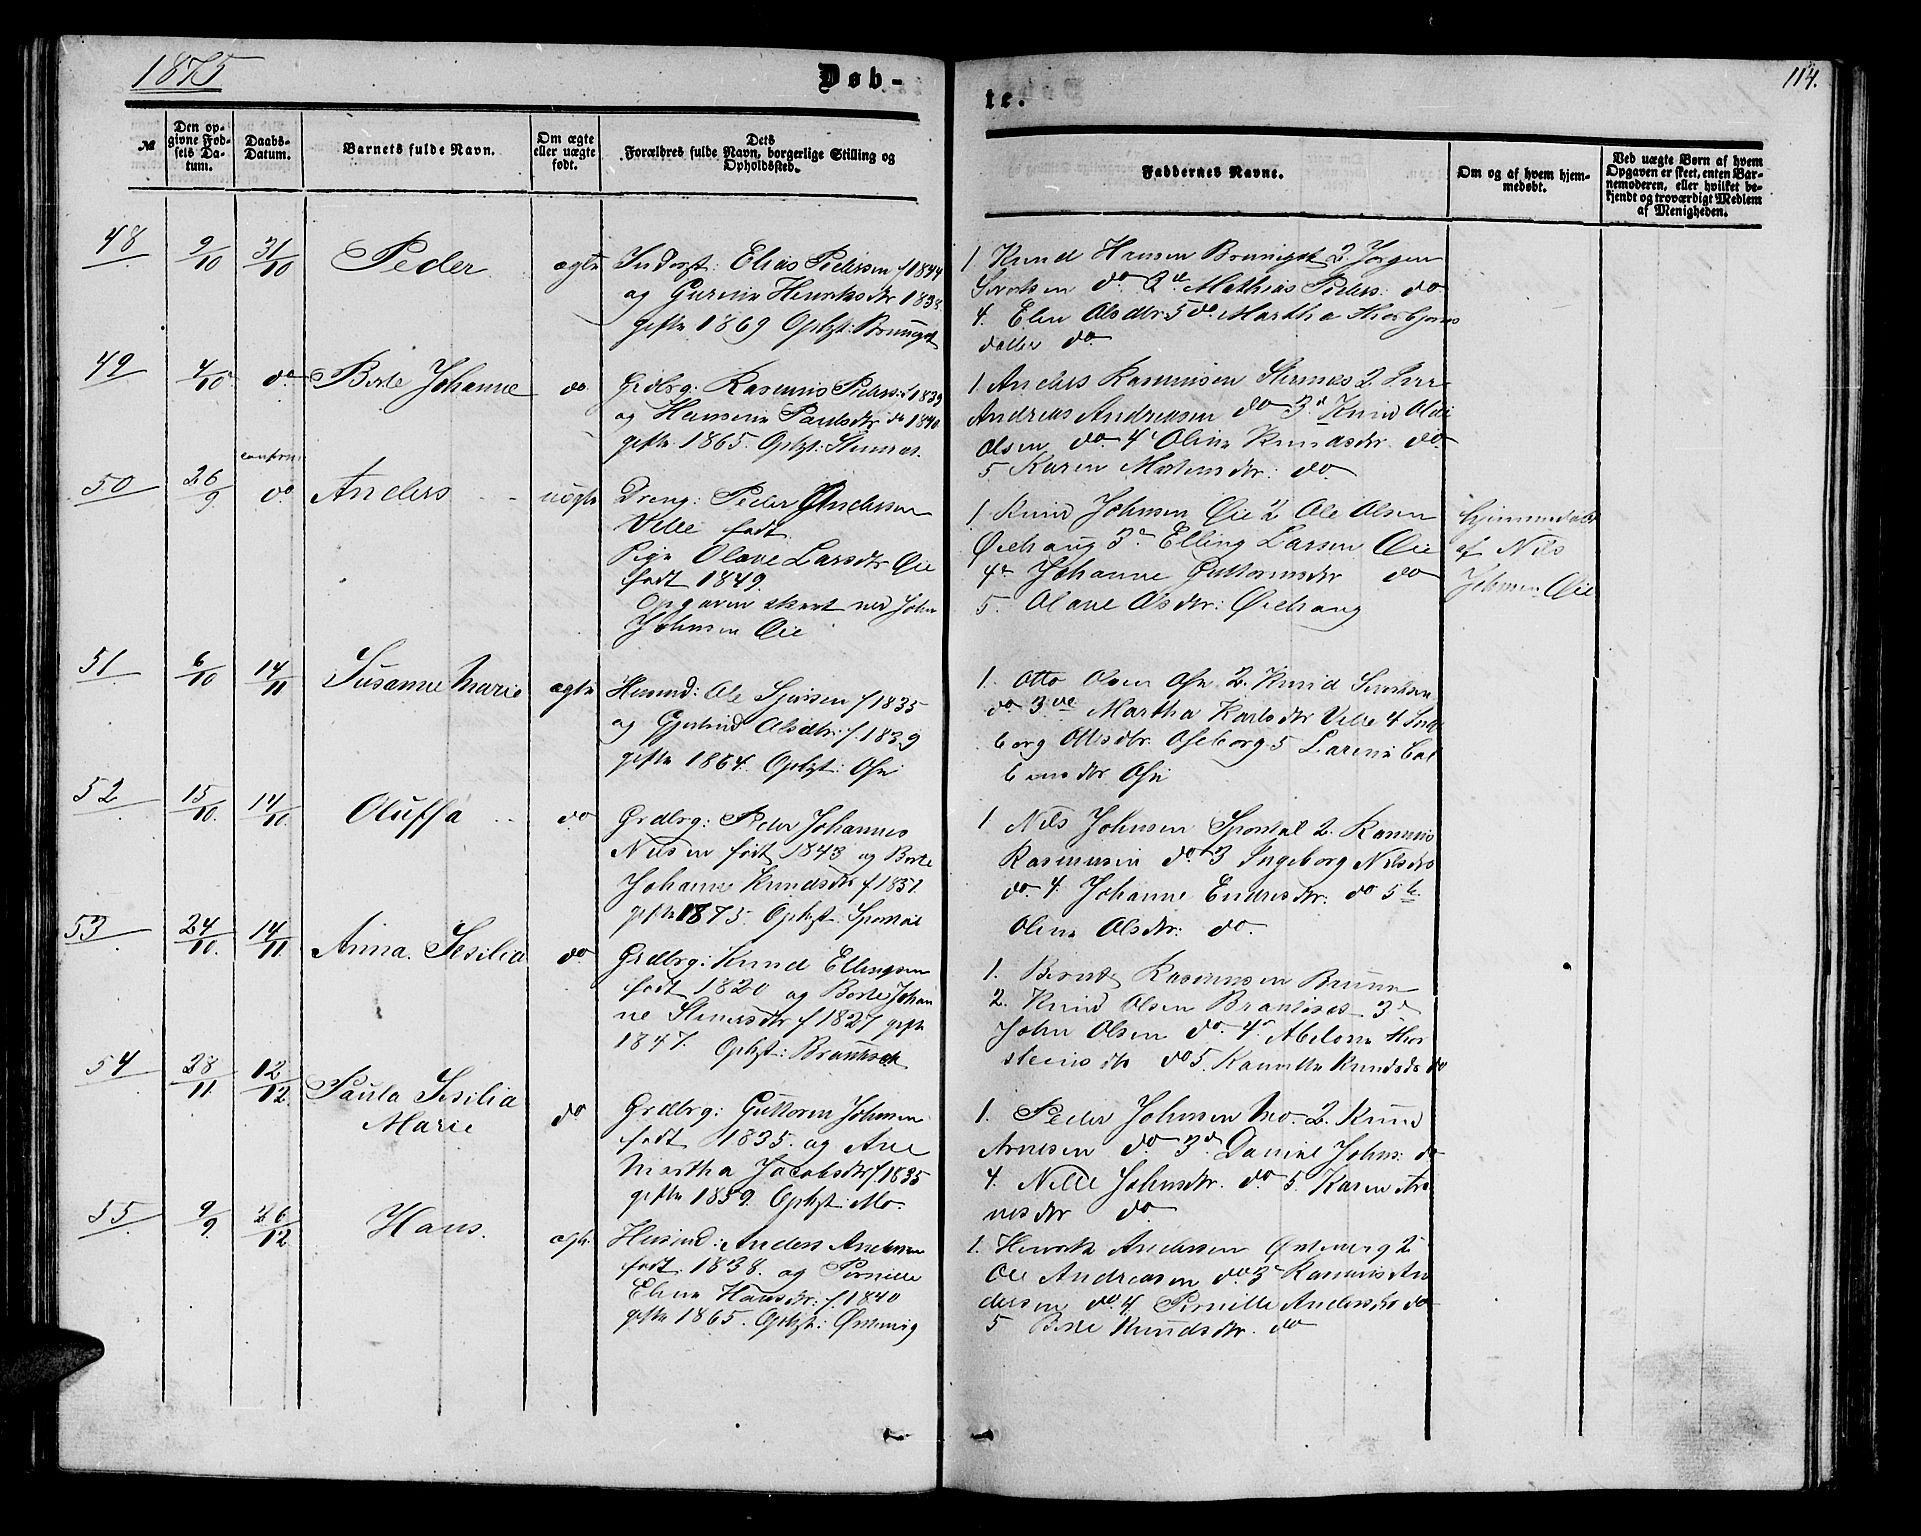 1875
Døb-
te.
114.
№
Den op-
givne Fød-
sels Da-
tum.
Daabs-
Datum.
Barnets fulde Navn.
Om ægte
eller uægte
født.
Dets
Forældres fulde Navn, borgerlige Stilling og
Opholdssted.
Faddernes Navne.
Om og af hvem hjem-
medøbt.
Ved uægte Børn af hvem
Opgaven er skeet, enten Bar-
nemoderen, eller hvilket be-
kjendt og troværdigt Medlem
af Menigheden.
48
9/10
31/10
Peder
ægte
Inderst: Elias Pedersen f 1844
og Gurine Henriksdtr 1838
gifte 1869 Ophgt:
1 Knud Hansen 2. Jørgen
do 3 Mathias Peders: do
4. Elen Olsdtr 5 do Martha Thorbjørns
datter do
49
4/10
do
Berte Johanne
do
Grdbrg: Rasmus Peders: f 1839
og Hansine Paulsdtr do 1840
gifte 1865. Ophgt:
1 Anders Rasmussen 2.
Andreas Andreassen do 3 Knud
Olsen do 4 Oline Knudsdtr do
5 Karen Mortensdtr: do
50
26/9
do
Anders
uægte
Dreng: Peder Andersen
Velle født
Pige Olave Larsdtr Øie
født 1849.
Opgaven skeet ved John
Johnsen Øie
1 Knud Johnsen Øie 2 Ole Olsen
Øiehaug 3 Elling Larsen Øie
4 Johanne Guttormsdtr do
5. Olave Olsdtr: Øiehaug
hjemmedøbt
af Nils
Johnsen Øie
51
6/10
14/11
Susanne Marie
ægte
Husmd: Ole f 1835
og Gjertrud Olsdtr: f. 1839
gifte 1864. Ophgt: Ose
1. Otto Olsen Ose 2. Knud
do 3 Martha Karlsdtr Velle 4 Inge
borg Ottosdtr. 5 Larine
Ose
52
15/10
14/10
Oluffa
do
Grdbrg: Peder Johannes
Nilsen født 1843 og Berte
Johanne Knudsdtr f 1851.
gifte 1875. Ophgt:
1 Nils Johnsen 2. Rasmus
Rasmussen do 3 Ingeborg Nilsdtr
do 4. Johanne Endresdtr. do 5
Oline Olsdtr: do.
53
24/10
14/11
Anna Sesilia
do
Grdbrg: Knud Ellingsen
født 1820 og Berte Johan
ne Steinersdtr f 1827 gifte
1847. Ophgt:
1. Rasmussen Bruun
2. Knud Olsen 3
John Olsen do 4 Abelone Thor
steinsdtr do 5. Knudsdtr do
54
28/11
12/12
Paula Sesilia
Marie
do
Grdbrg: Guttorm Johnsen
født 1835. og Ane
Martha Jacobsdtr f. 1835
gifte 1859. Ophgt: Mo.
1. Peder Johnsen Mo. 2. Knud
Arnesen do 3 Daniel Johns: do
4. Nille Johnsdtr. do 5. Karen Ar
nesdtr do
55.
9/9
26/12
Hans.
ægte
Husmd: Anders Andersen
født 1838. og Pernille
Eline Hansdtr: f. 1840
gifte 1865. Ophgt:
1. Henrik Andersen 2
Ole Andreasen do 3 Rasmus An
dersen do 4. Pernille Andersdtr do
5 Berte Knudsdtr. do